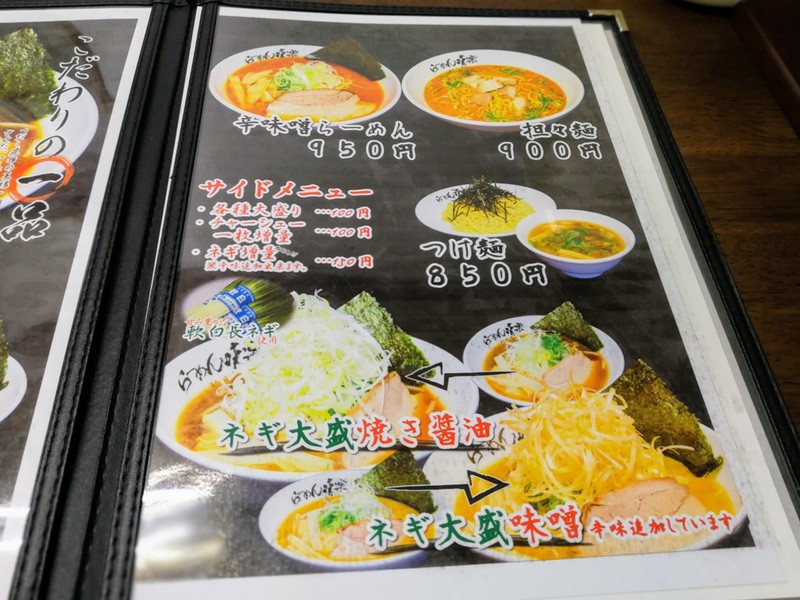 こだわりの一品
辛味噌らーめん
950円
担々麺
900円
サイドメニュー
・各種大盛り …100円
・チャーシュー
一枚増量 …100円
・ネギ増量 …150円
つけ麺
850円
軟白長ネギ
使用
ネギ大盛焼き醤油
ネギ大盛味噌 辛味追加しています